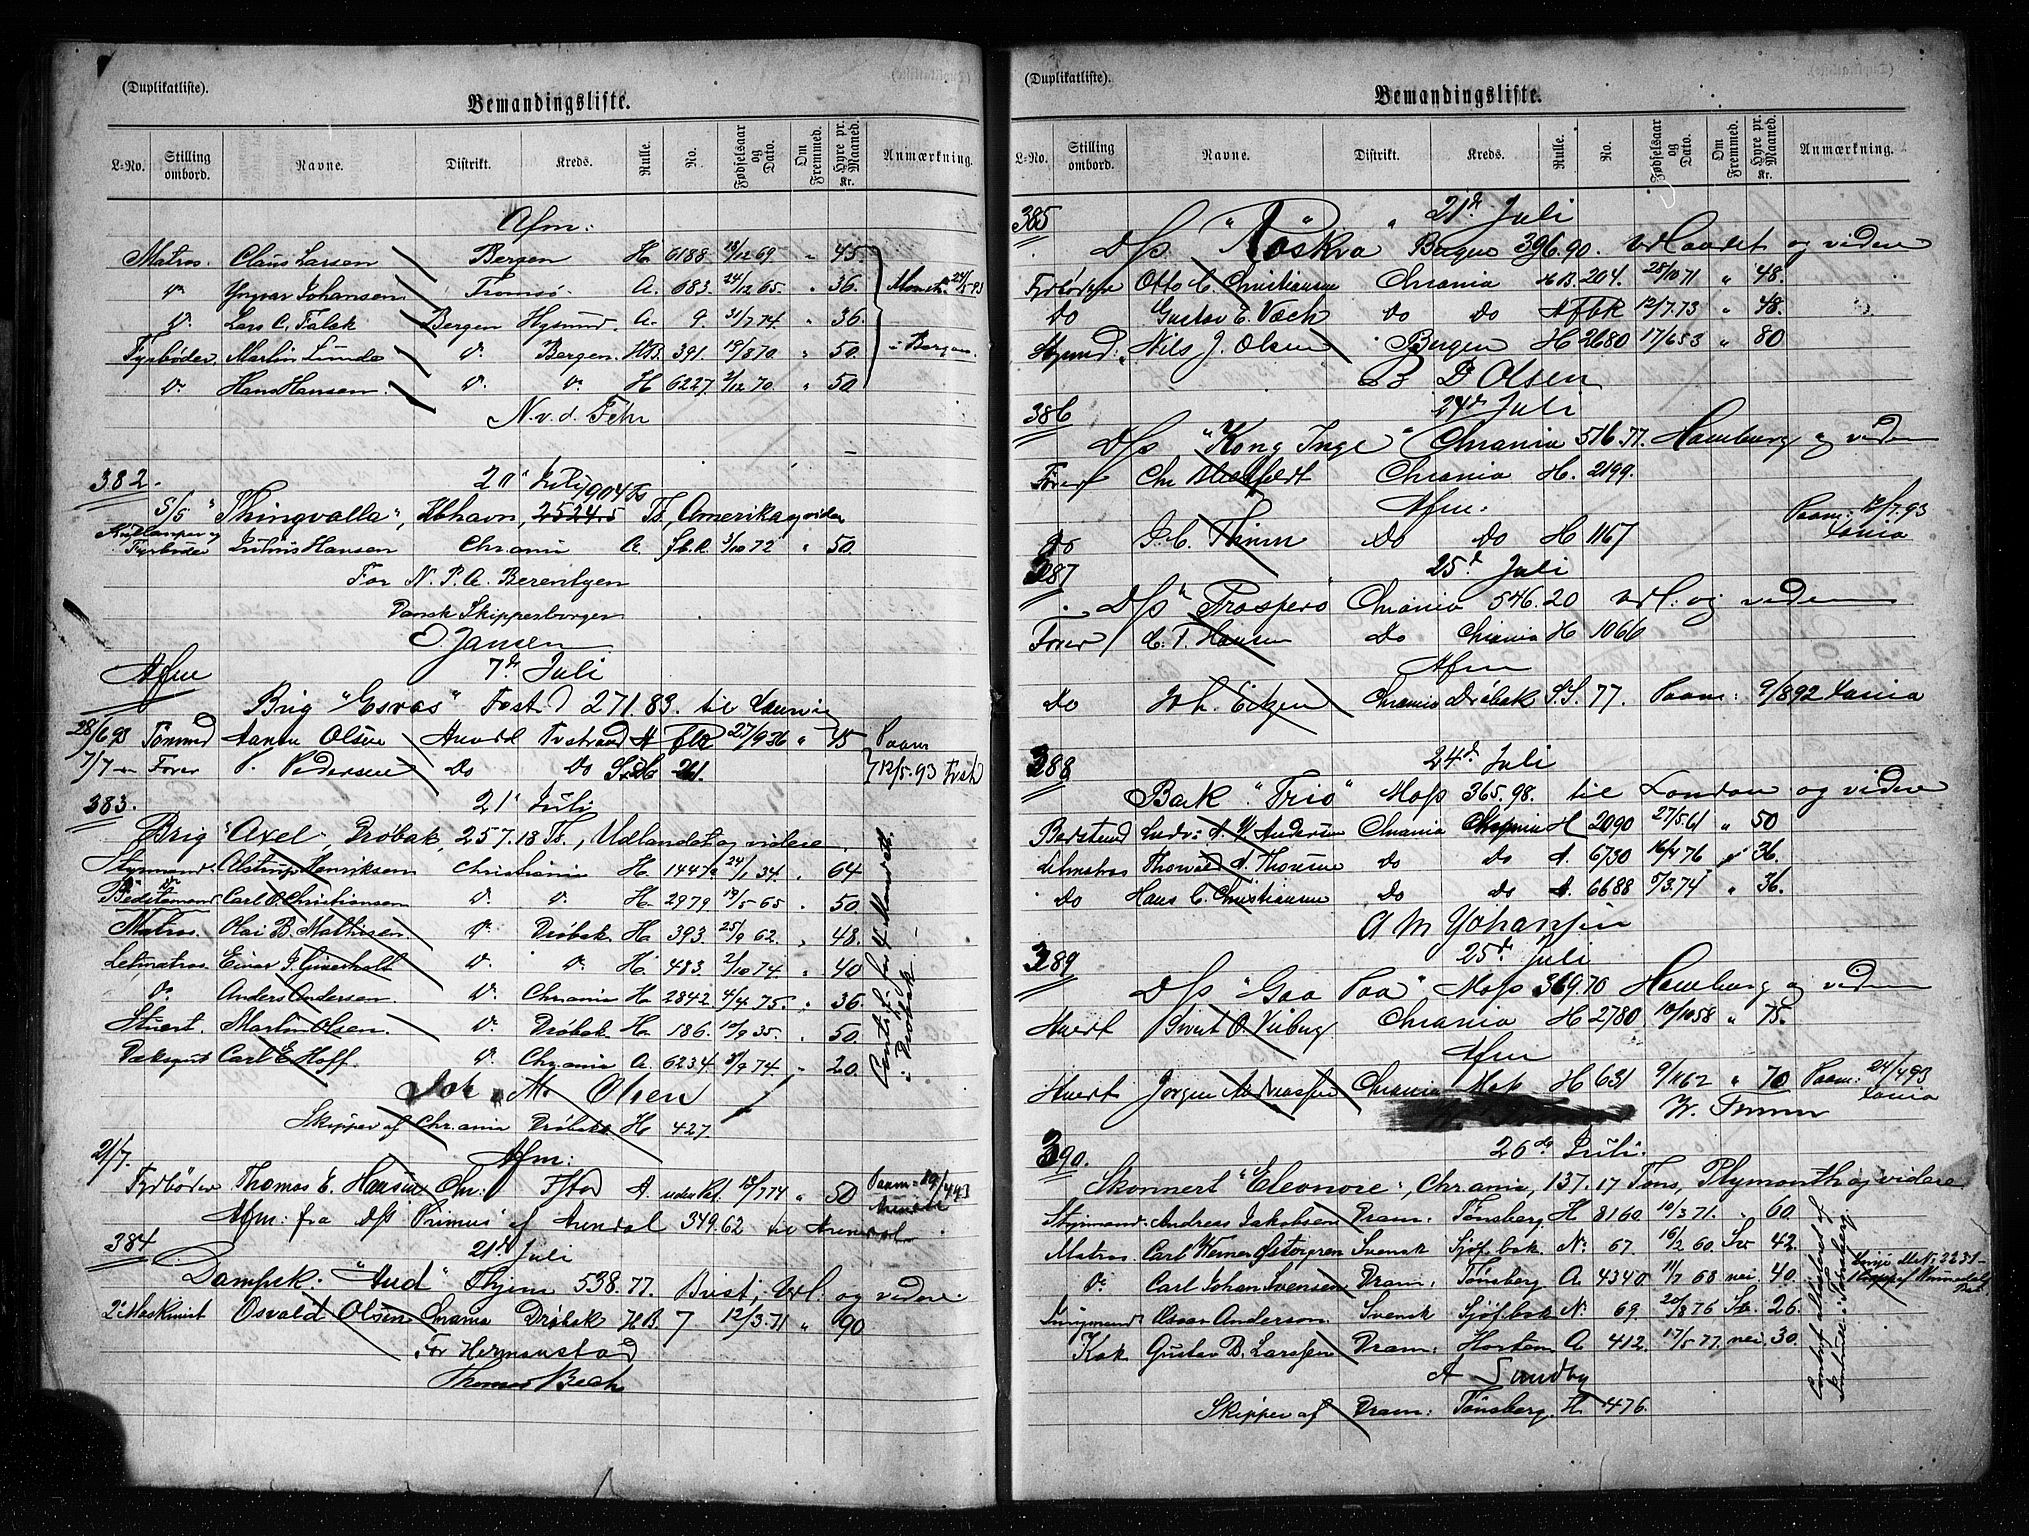 (Duplikatliste).
Bemandingsliste.
L-No. Stilling ombord. Navne. Distrikt. Kreds. Rulle. No. Fødselsaar og Dato. Om Fremmed. Hyre pr. Maaned. Kr. Anmærkning.
Afm:
Matros. Claus Larsen Bergen H. 6188 18/12 69 " 45
Do Yngvar Johansen Tromsø A. 683. 24/12 65. " 36.
Do. Lars C. Falck Bergen A. 9. 31/7 74. " 36.
Fyrbøder, Martin Lunde Do. Bergen. HB. 391. 19/8 70 " 50. i Bergen.
Do Hans Hansen. Do. Do. H 6227. 2/12 70 " 50.
N. v. d. Fehr
382. 20' Juli
904 Ts
S/S "Thingvalla", Kbhavn, 2524.5 Ts, Amerika og videre
Fyrbøder Julius Hansen Chrania A. fb.A. 3/10 72 " 50.
For N. P. A. Berentzen
Dansk Skippersborger
O. Jansen
Afm 7de Juli
Brig "Esras" Tvestrd 271.83. til Laurvig
28/6 93 Tømmd Olsen Arendl Tvestrand A fbR 27/9 36 " 45 Paam
7/7 - Fører P. Pedersen Do Do 261. 12/5.93 Tvstr
383. 21' Juli
Brig "Axel", Drøbak, 257.18 Ts., Udlandet og videre.
Styrmand. Alstrup Henriksen Christiania H. 1447a 24/1 34. " 64
Bedstemand Carl O. Christiansen Do Do. H. 2979. 19/5 65. " 50.
Matros. Olai B. Mathisen. Do Drøbak. H. 393. 25/9 62. " 48.
Letmatros. Einar F. Do. Do. H. 483. 2/10 74. " 40
Do Anders Andersen. Do. Chrania H. 2842. 4/4 75. " 36.
Stuert. Martin Olsen. Do Drøbak H. 186. 10/9 35. " 50.
Dæksgut Carl E. Hoff. Do Chrania A. 6234. 3/9 74. " 20.
i Drøbak.
M. Olsen
Skipper af Chrania Drøbak H 427.
21/7. Afm:
Fyrbøder Thomas E. Hansen Chr: Fstad A. uden Pat. 13/7 74 " 50 Paam: 19/4 93 Arendal
Afm: fra D/S "Primus" af Arendal 349.62 til Arendal
384. 21de Juli
Dampsk. "Aud" Thjem 538.77. Best, Udl. og videre.
2' Maskinist Osvald Olsen Chrania Drøbak HB 7 12/3.71 " 90
For Hermanstad
Thomas Bech
(Duplikatliste).
Bemandingsliste.
L-No. Stilling ombord. Navne. Distrikt. Kreds. Rulle. No. Fødselsaar og Dato. Om Fremmed. Hyre pr. Maaned. Kr. Anmærkning.
385 21de Juli
D/S "Røskva" Bergen 396.90. Udlandet og videre
Fyrbøder Otto C. Christiansen Chrania HB. 204. 28/10 71 " 48.
Do Gustav E. Væck Do Do A fbk 12/7.73 " 48.
Styrmd. Nils J. Olsen Bergen H 2680 17/6 53 " 80
B D Olsen
386 24de Juli
D/S "Kong Inge" Chrania 516.77. Hamburg og videre
Fører Chr Blichfeldt Chrania H. 2199.
Afm. Paam: 12/7.93
Do Thimm Do Do H 1167 Xania
387 25de Juli
D/S "Prospero" Chrania 546.20 Udl: og videre
Fører C. T. Hansen Do Chrania H 1066
Afm
Do Joh. Eitzen Chrania Drøbak S.S. 77. Paam: 9/8 92 Xania
388 24de Juli
Bark "Trio" Moss 365.98. til London og videre
Bedstemd Ludv: A. W. Andersen Chrania Chrania H 2090 27/5 61 " 50
Letmatros Thorvald A. Thorsen Do Do A. 6730 16/4 76 " 36.
Do Hans C. Christiansen Do Do A. 6688 5/3.74 " 36.
A M Johansen
389 25de Juli
D/S "Gaa Paa" Moss 369.70 Hamburg og videre
Stuert Sivert O. Viiberg Chrania H 2780 10/10 58 " 75.
Afm
Stuert Jørgen Andreassen Chrania Moss H 631 9/11 62 " 70 Paam: 24/4 93 Xania
W. Timm
390. 26de Juli.
Skonnert "Eleonore", Chrania, 137.17 Tons, Plymouth og videre
Styrmand. Andreas Jakobsen Dram: Tønsberg H 8160 10/3 71. " 60.
Matros. Carl Werner Østergren Svensk Sjöf. bok. No. 67. 16/2 60. Sv 42.
Do. Carl Johan Svensen Dram: Tønsberg A 4340 11/7 68 nei. 40.
Jungmand Oscar Anderson. Svensk Sjöf. bok No. 69. 20/8 76 Sv. 26.
Kok Gustav B. Larssen Dram: Horten A 412. 17/5 77. nei. 30.
A Sundby
Skipper af Dram: Tønsberg. H. 476.